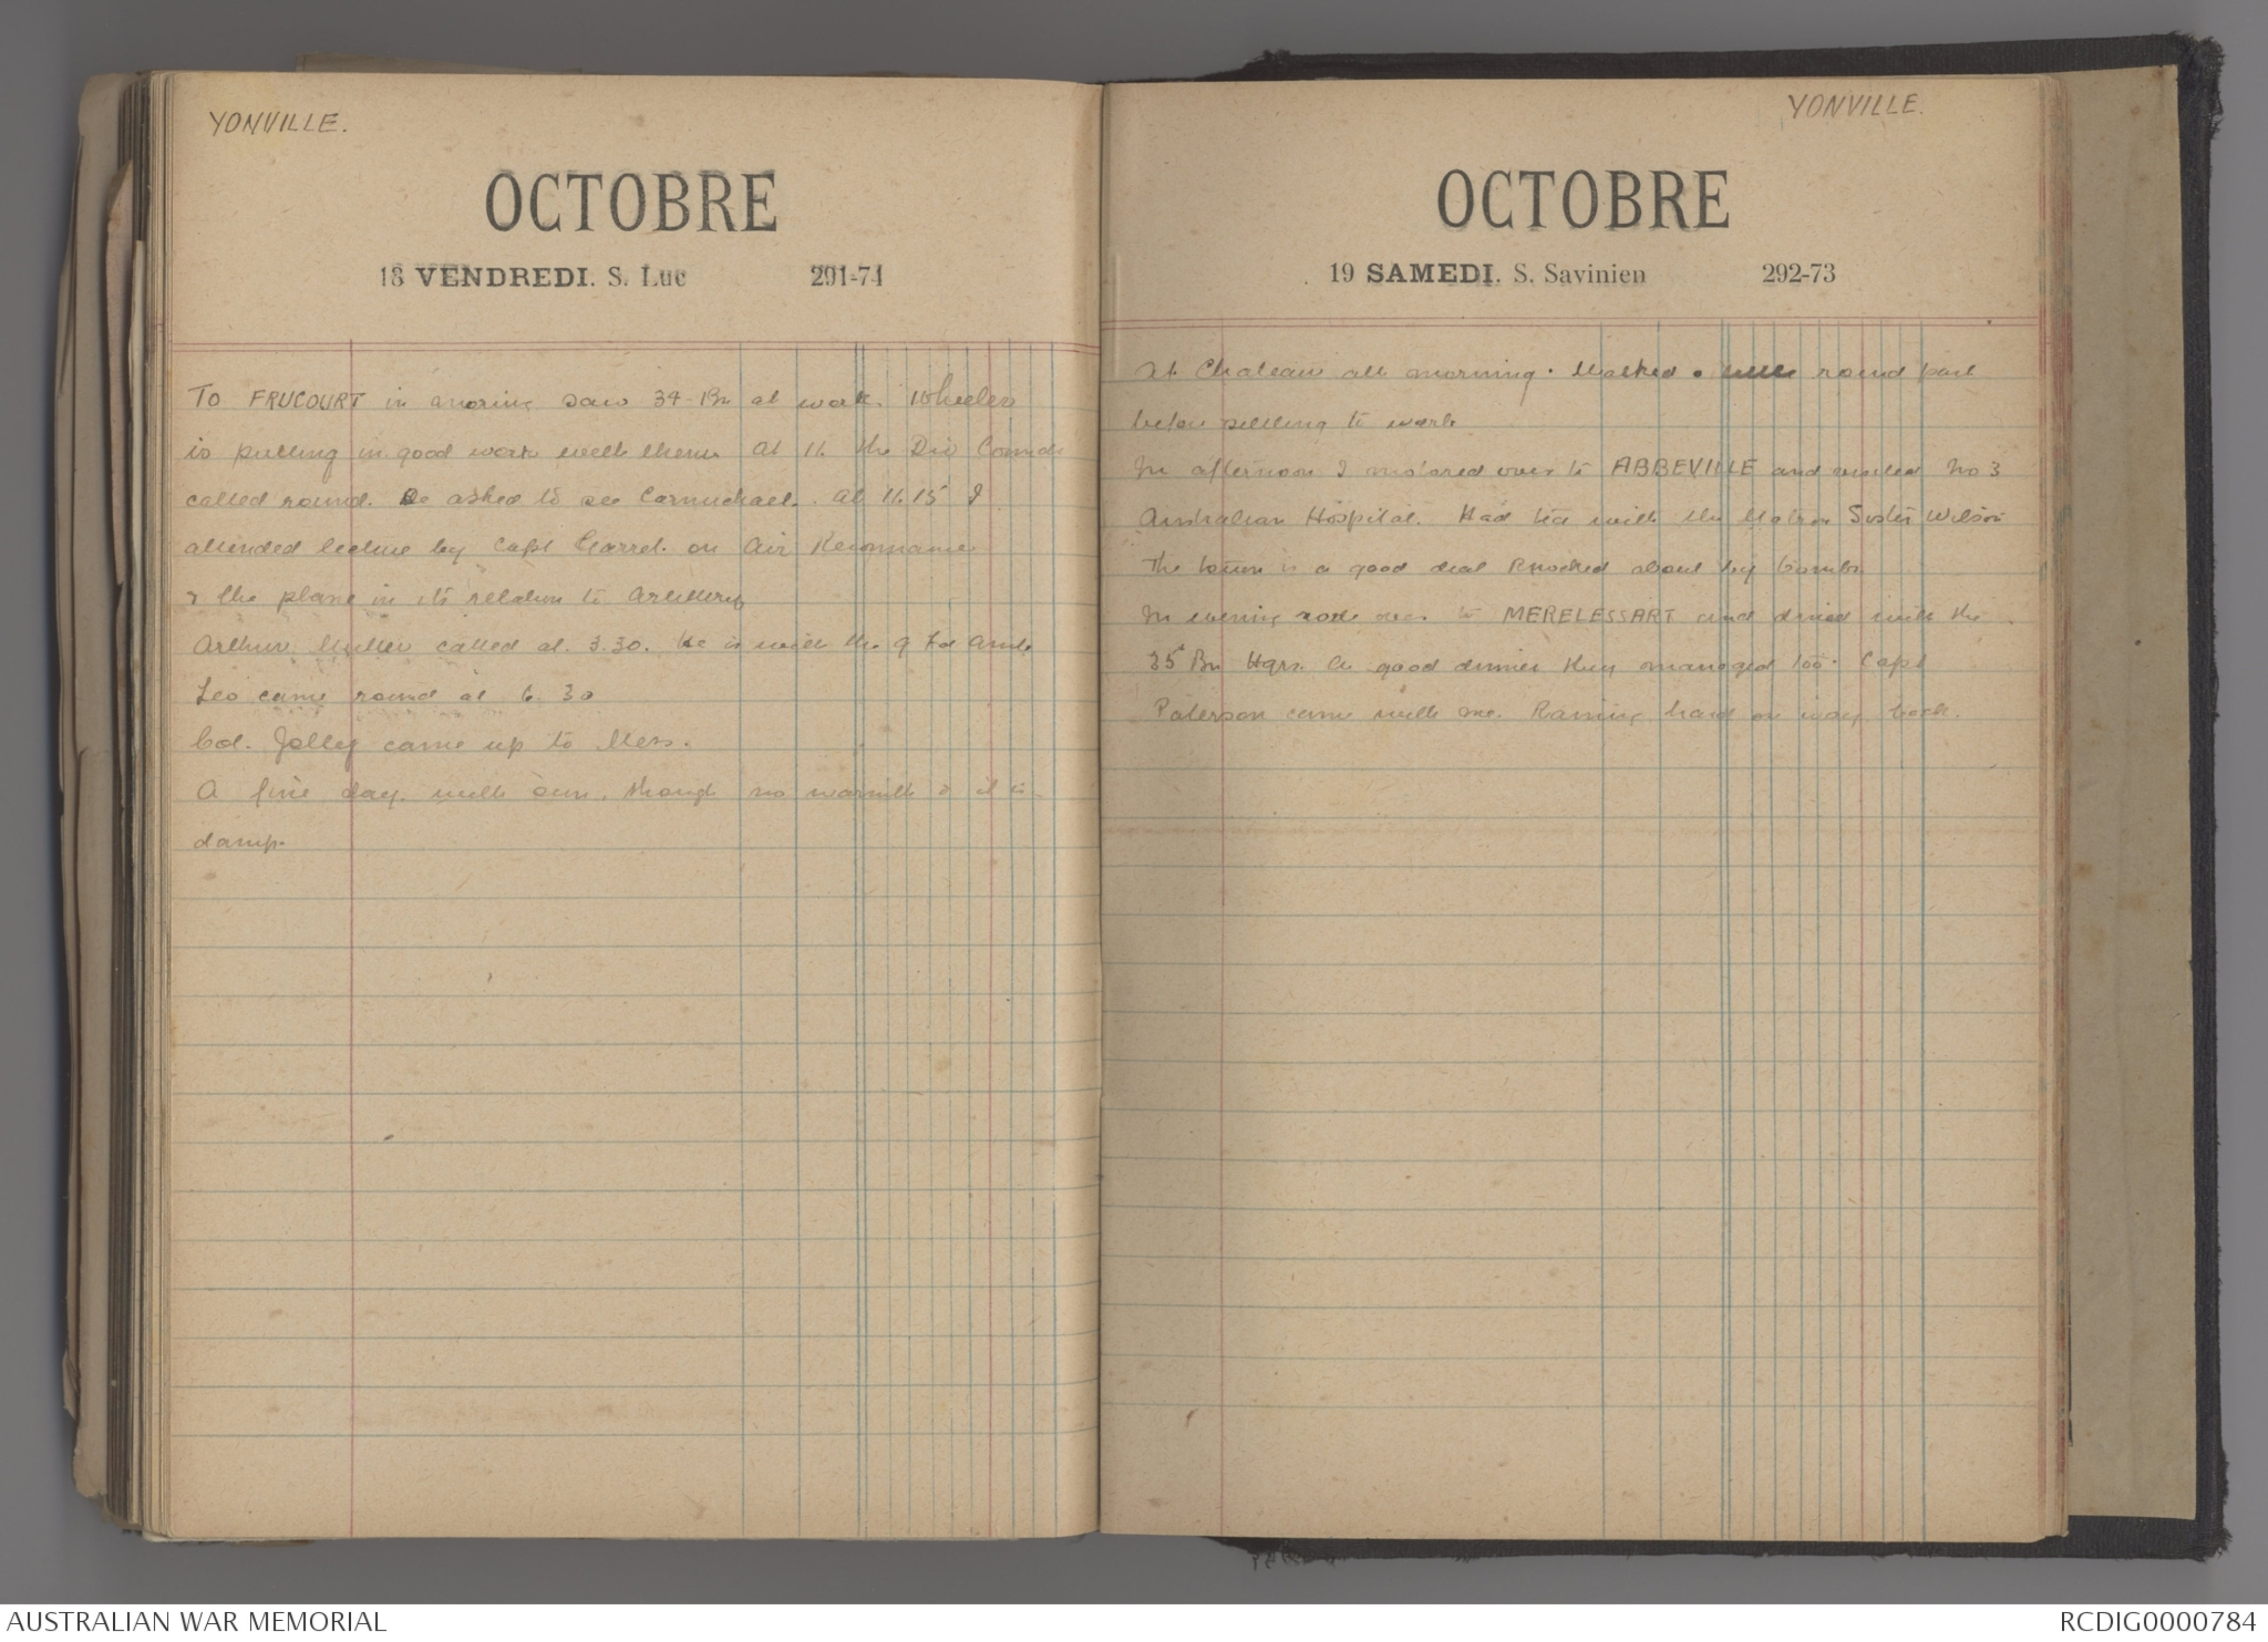 YONVILLE.
OCTOBRE
18 VENDREDI. S. Luc 291-74
To FRUCOURT in morning saw 34 Bn at work. Wheeler
is putting in good work with them At 11. the Div Comdr
called round. He asked to see Carmichael. At 11.15 I
attended lecture by Capt Garret. on Air
& the plane in its relation to Artillery
Arthur called at. 3.30. He is with the 9 Fd Amb
Leo came round at 6.30
Col. Jolley came up to Mess.
A fine day. with sun, though no warmth & it is
damp.
YONVILLE.
OCTOBRE
19 SAMEDI. S. Savinien 292-73
At Chateau all morning. Walked round park
before settling to work
In afternoon I motored over to ABBEVILLE and visited No 3
Australian Hospital. Had tea with the Matron Sister Wilson
The town is a good deal knocked about by bombs
In evening rode over to MERELESSART and dined with the
35th Bn Hqrs. A good dinner they managed too. Capt
Paterson came with me. Raining hard on way back.
AUSTRALIAN WAR MEMORIAL
RCDIG0000784